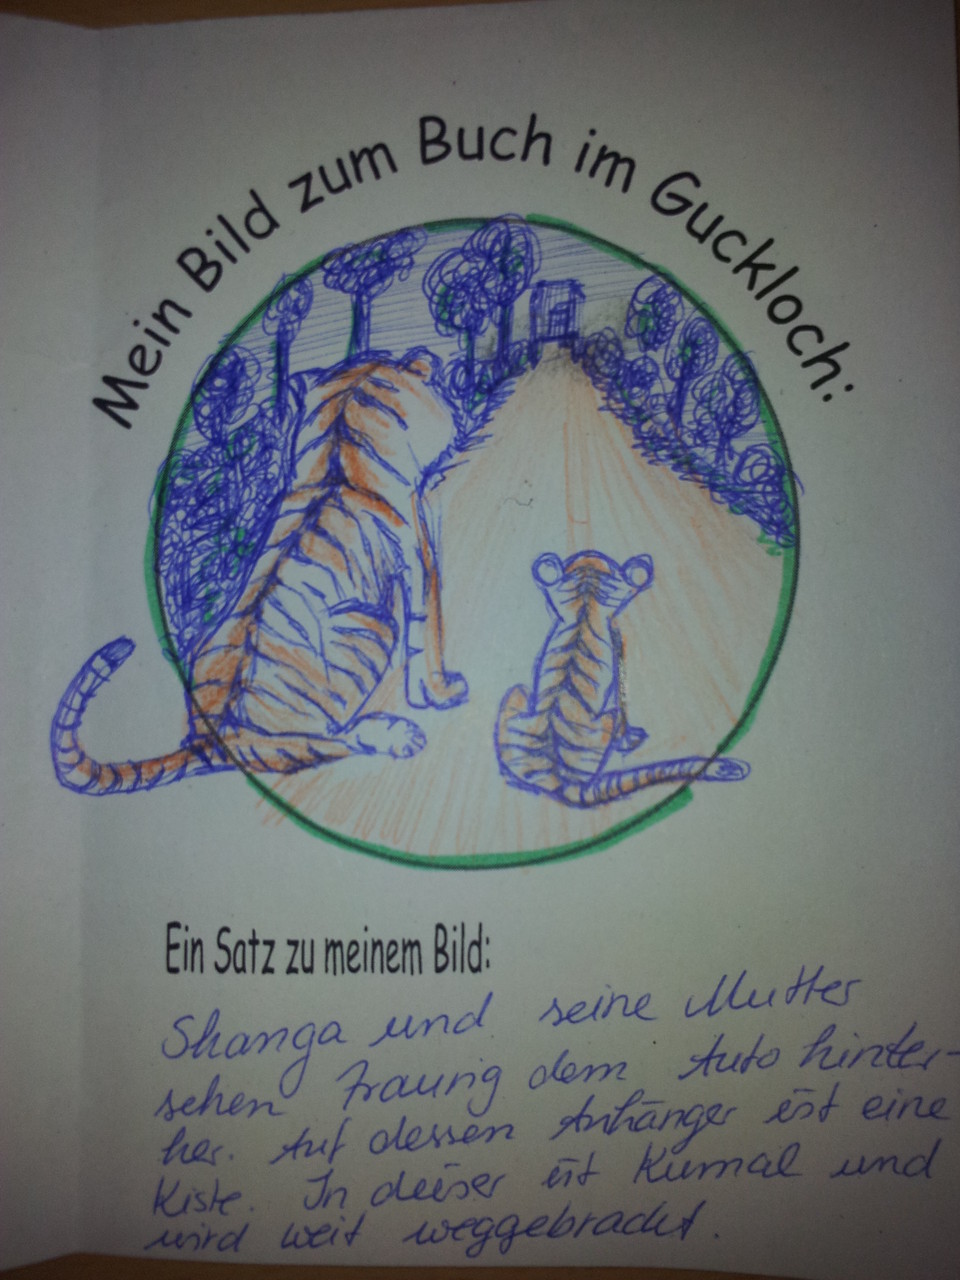 Mein Bild zum Buch im Guckloch:
Ein Satz zu meinem Bild:
Shanga und seine Mutter
sehen traurig dem Auto hinter-
her. Auf dessen Anhänger ist eine
Kiste. In dieser ist Kumal und
wird weit weggebracht.